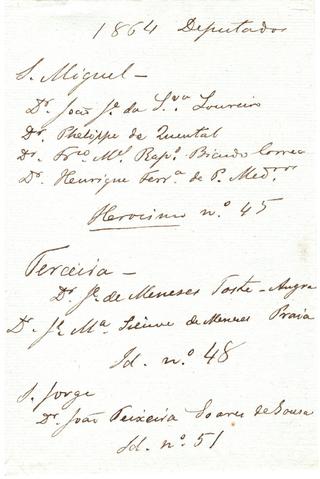 1864 Deputados
S. Miguel —
Dr. João Je. da S.va Loureiro
Dr. Phelippe de Quental
Dr. Frco. Ml. Rapo. Bicudo Correa
Dr. Henrique Ferra. de P. Medros
Heroismo nº. 45
Terceira —
Dr. Je. de Meneses Toste - Angra
Dr. Je. Ma. Sieuve de Meneses Praia
Id. nº. 48
S. Jorge
Dr. João Teixeira Soares de Sousa
Id. nº. 51